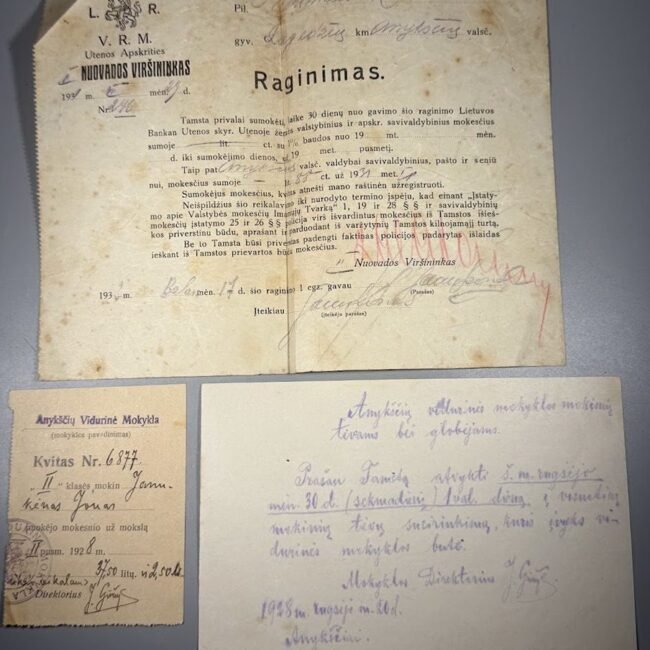 L. R.
V. R. M.
Utenos Apskrities
NUOVADOS VIRŠININKAS
193 m. mėn. d.
Nr.
Pil.
gyv. km Anykščių valsč.
Raginimas.
Tamsta privalai sumokėti, laike 30 dienų nuo gavimo šio raginimo Lietuvos
Bankan Utenos skyr. Utenoje žemės valstybinius ir apskr. savivaldybinius mokesčius
sumoje lit. ct. su % baudos nuo 19 mt. mėn.
d. iki sumokėjimo dienos, už 19 met. pusmetį.
Taip pat Anykščių valsč. valdybai savivaldybinius, pašto ir seniū
nui, mokesčius sumoje lit. ct. už 1931 met.
Sumokėjus mokesčius, kvitas atnešti mano raštinėn užregistruoti.
Neišpildžius šio reikalavimo iki nurodyto termino įspėju, kad einant „Įstaty-
mo apie Valstybės mokesčių Imamąjų Tvarką“ 1, 19 ir 28 §§ ir savivaldybinių
mokesčių įstatymo 25 ir 26 §§ policija virš išvardintus mokesčius iš Tamstos išieš-
kos priverstinu būdu, aprašant ir parduodant iš varžytynių Tamstos kilnojamąjį turtą,
Be to Tamsta būsi priverstas padengti faktinas policijos padarytas išlaidas
ieškant iš Tamstos prievartos būdu mokesčius.
Nuovados Viršininkas
193 m. mėn. 17 d. šio raginimo 1 egz. gavau
(Parašas)
Įteikiau
(Įteikėjo parašas)
Anykščių Vidurinė Mokykla
(mokyklos pavadinimas)
Kvitas Nr. 6877
„II“ klasės mokin Janu-
kėnas Jonas
mokėjo mokesnio už mokslą
II pusm. 1928 m.
3750 litų. ir 2,50
Direktorius
Anykščių vidurinės mokyklos mokinių
tėvams bei globėjams.
Prašau Tamstą atvykti š. m. rugsėjo
mėn. 30 d. (sekmadienį) 1 val. dieną į visuotiną
mokinių tėvų susirinkimą, kuris įvyks vi-
durinės mokyklos bute.
Mokyklos Direktorius
1928 m. rugsėjo m. 20 d.
Anykščiai.